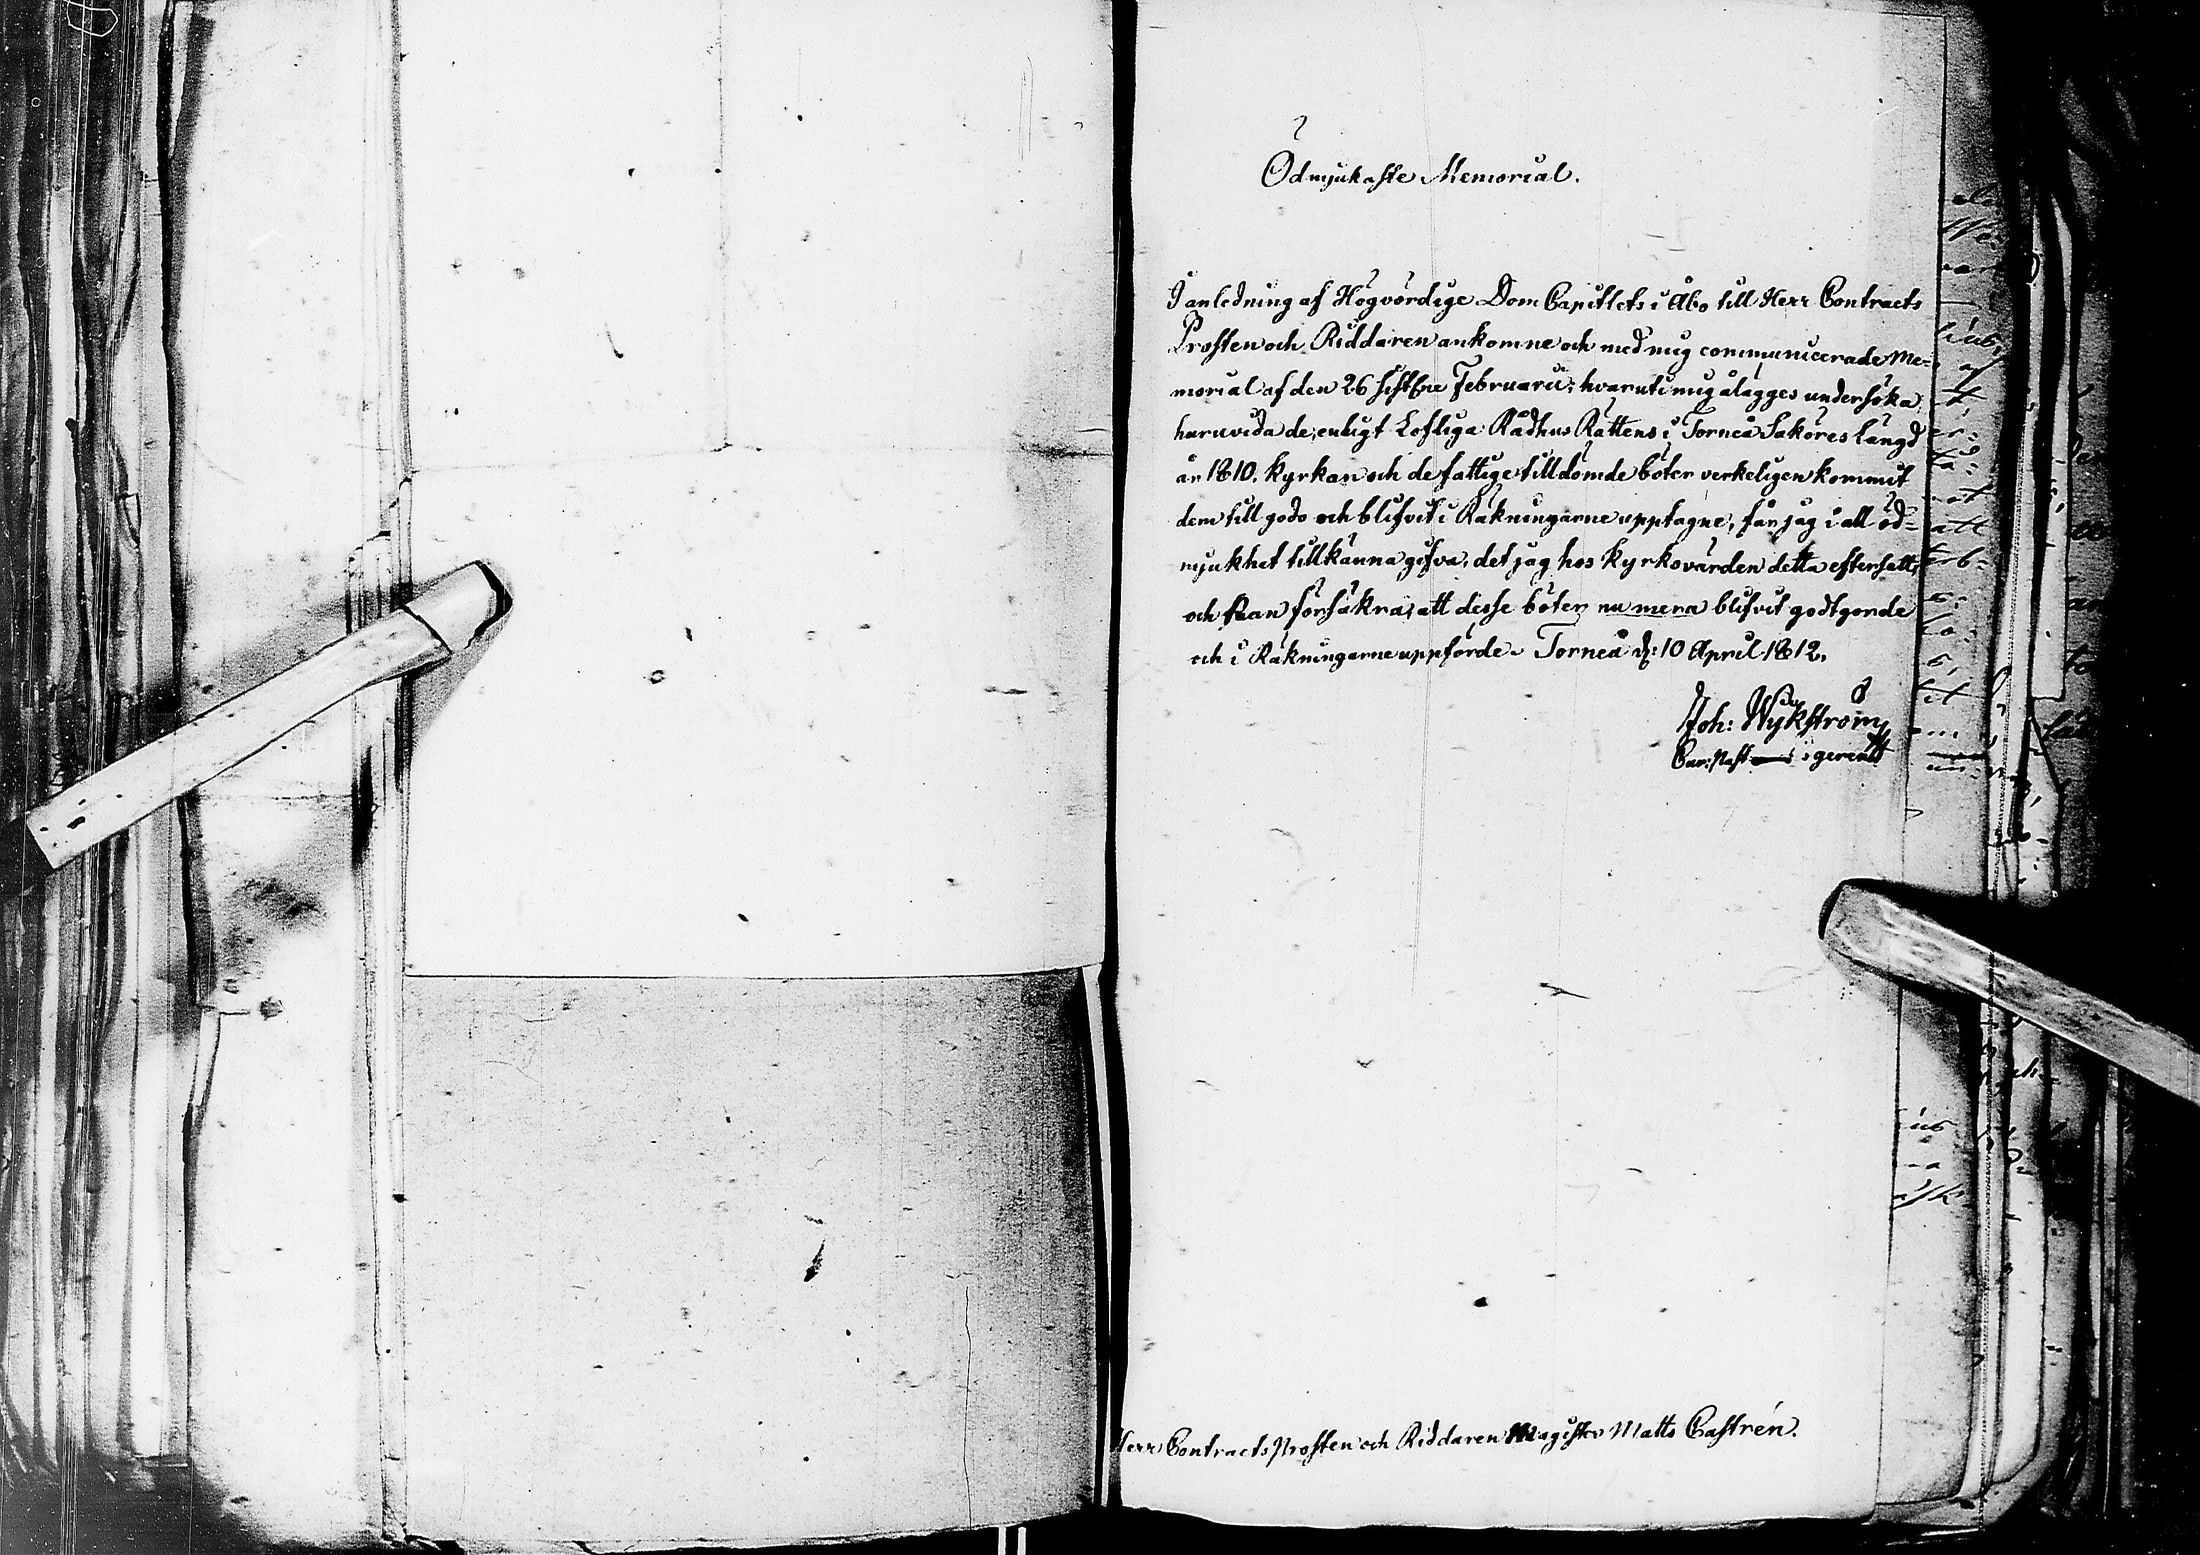 Ödmjukaste Memorial.
I anledning af Högvördige Dom Capitlets i Åbo till Herr Contracts
Prosten och Riddaren ankomne och med mig communicerade Me-
morial af den 26 sistl:ne Februarii, hvaruti mig ålägges undersöka,
huruvida de, enligt Lofliga Rådhus Rättens i Torneå Saköreslängd
år 1810. Kyrkan och de fattige tilldömde böter verkeligen kommit
dem till godo och blifvit i Räkningarne upptagne, får jag i all öd-
mjukhet tillkänna gifva, det jag hos Kyrkovärden detta eftersatt,
och kan försäkra, att desse böter nu mera blifvit godtgorde
och i Räkningarne uppförde. Torneå d: 10 April 1812.
Joh: Wykström
igen
Herr Contracts Prosten och Riddaren Magister Matts Castrén.